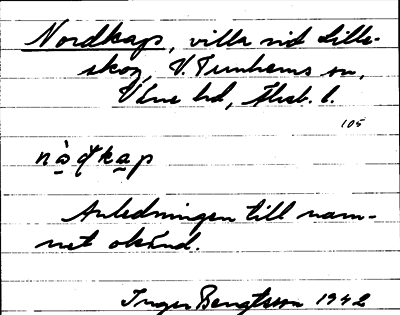 Nordkap, villa vid Lille-
skog, V. Tunhems sn,
Väne hd, Älvsb. l.
105
nòḍkap
Anledningen till nam-
net okänd.
Inger Bengtsson 1942